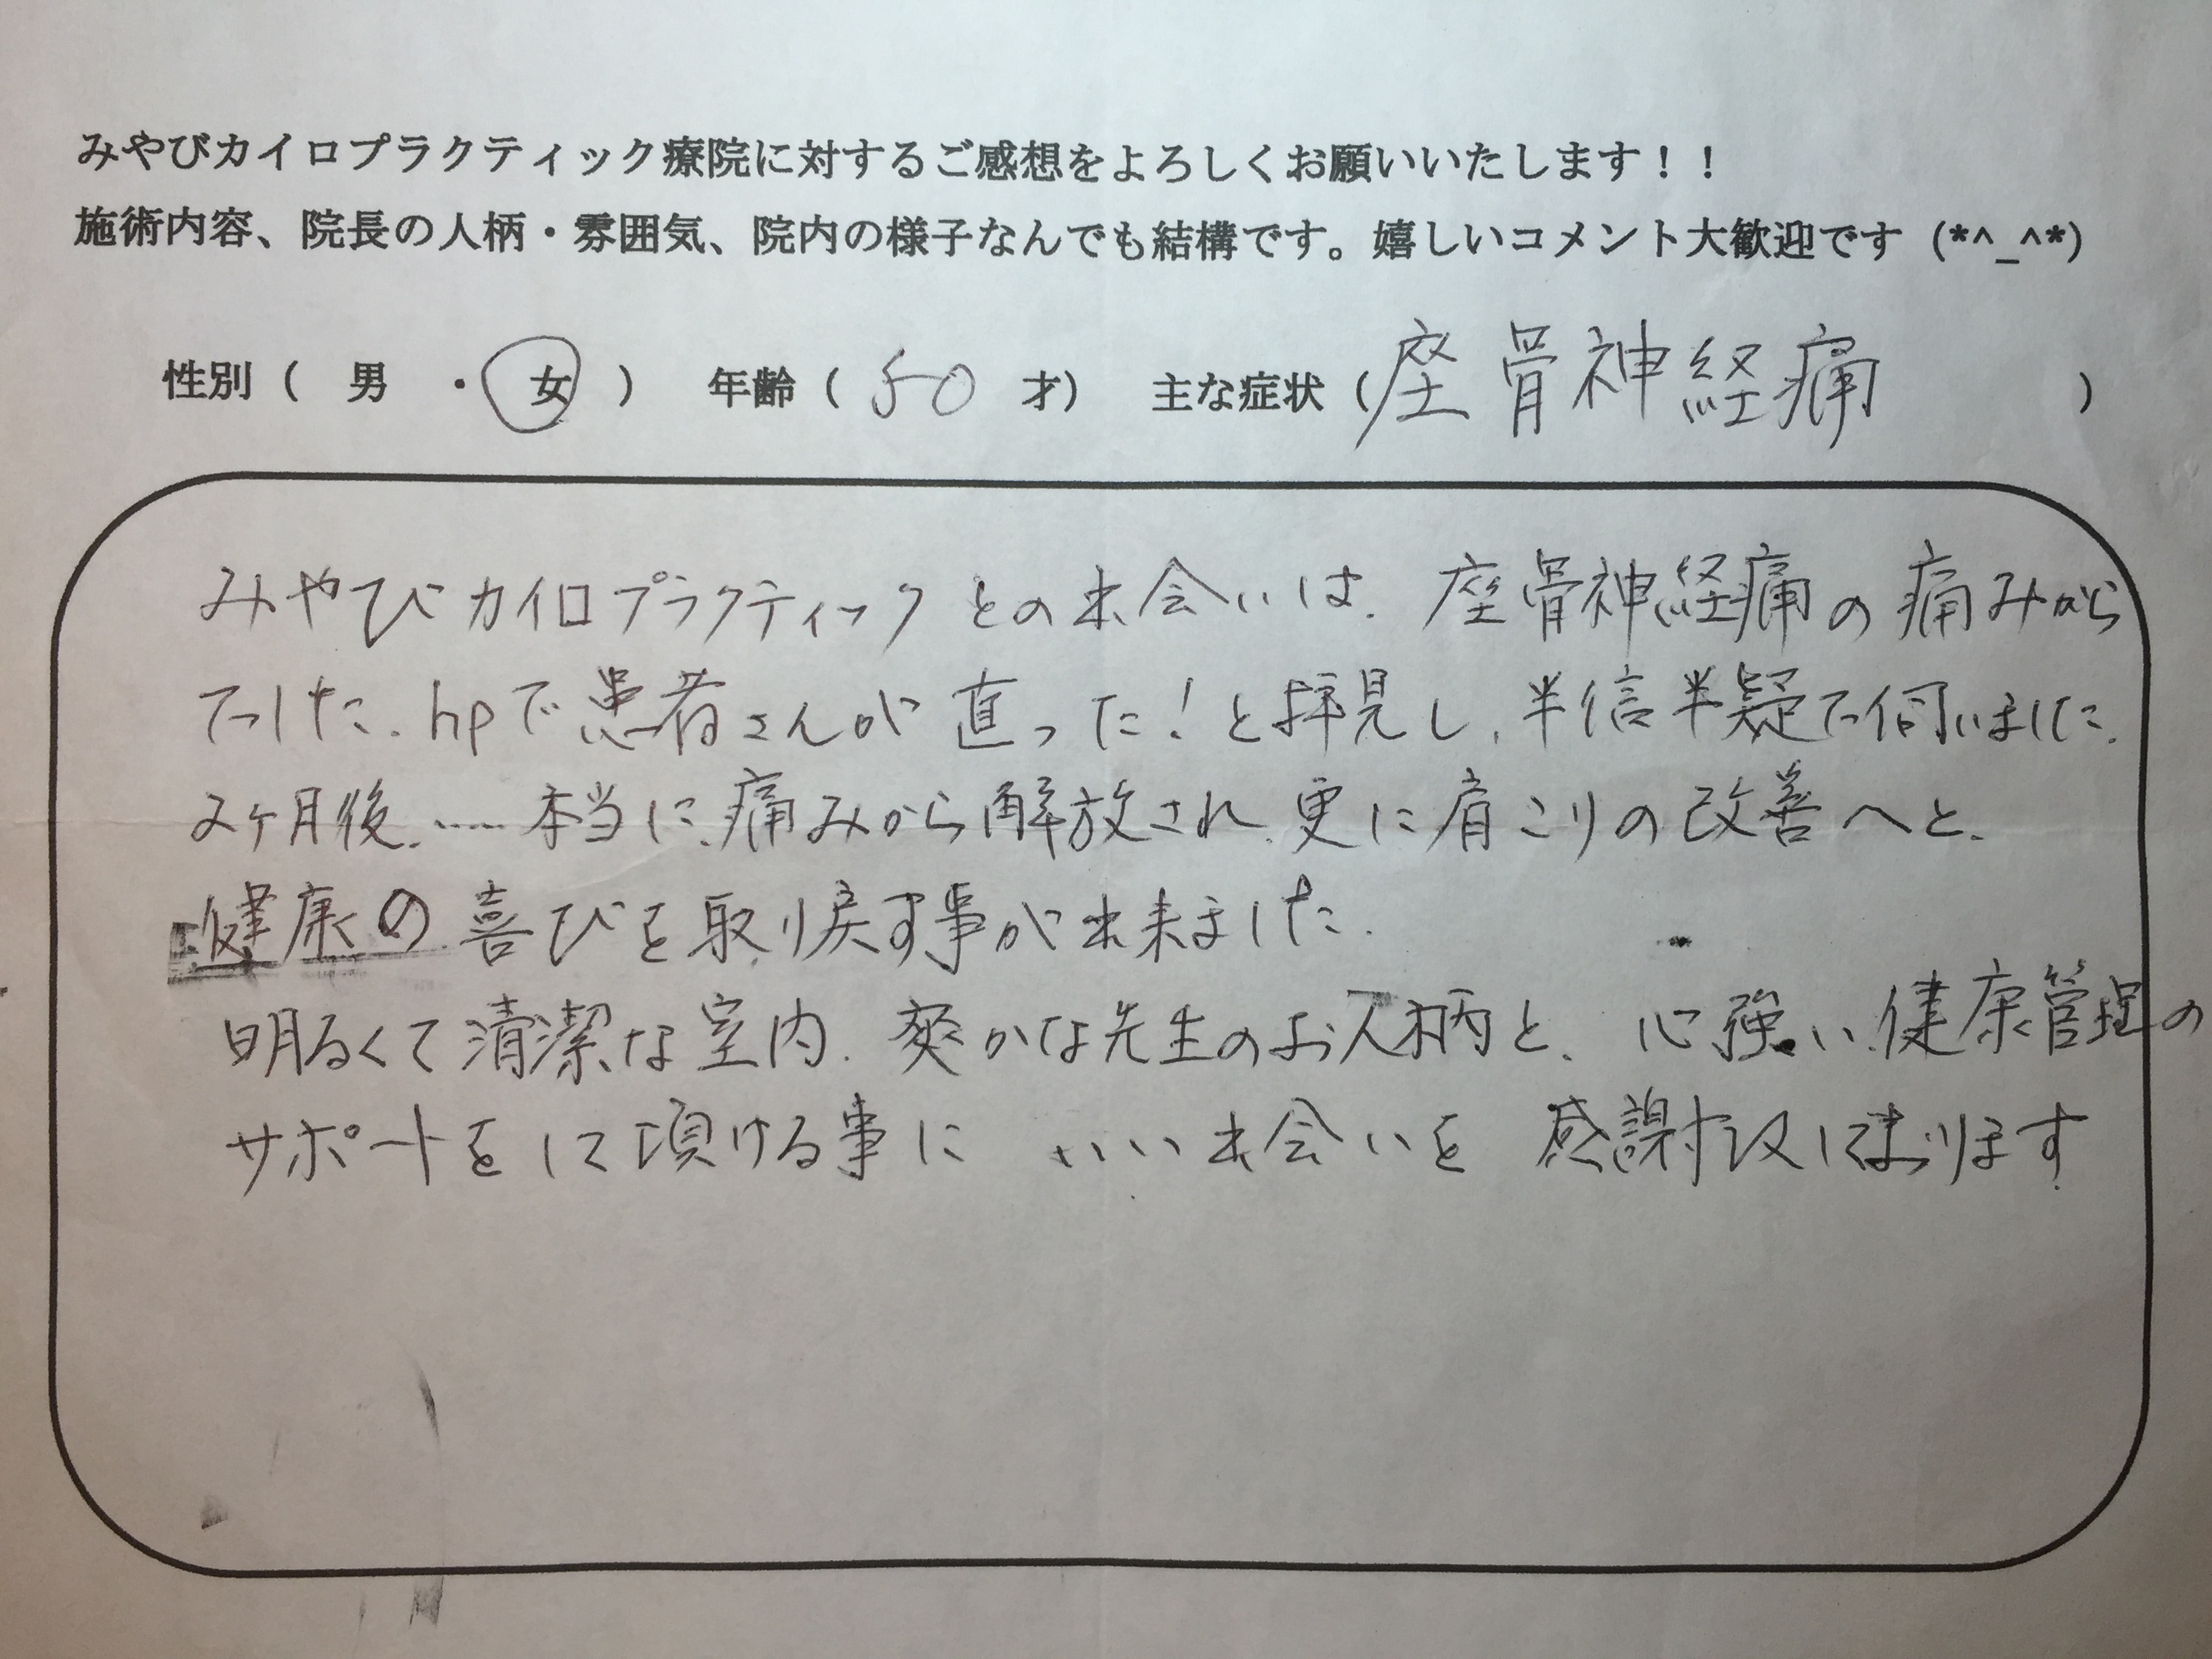 みやびカイロプラクティック療院に対するご感想をよろしくお願いいたします！！
施術内容、院長の人柄・雰囲気、院内の様子なんでも結構です。嬉しいコメント大歓迎です (*^_^*)
性別（ 男 ・ 女 ） 年齢（ 50 才） 主な症状（座骨神経痛 ）
みやびカイロプラクティックとの出会いは、座骨神経痛の痛みから
でした。hpで患者さんが直った！と拝見し、半信半疑で伺いました。
2ヶ月後、……本当に、痛みから解放され、更に肩こりの改善へと、
健康の喜びを取り戻す事が出来ました。
明るくて清潔な室内、爽かな先生のお人柄と、心強い、健康管理の
サポートをして頂ける事に いい出会いを 感謝しております